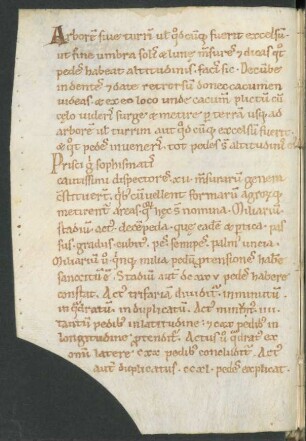 Arborē siue turrī uł qđcūq; fuerit excelsū
ut sine umbra solis & lune mēsures & dicas q̄t
pedes habeat altitudinis. facies sic. Decūbe
in dentes & da te retrorsū donec cacumen
uideas. & ex eo loco unde cacumē
celo uideris surge & metire p̄ terrā usq; ad
arborē uł turrim aut qđcūq; excelsū fuerit.
& q̄t pedes inueneris tot pedes ē altitudinis
Prisci
cautissimi dispectores .xii. mēsurarū genera
c̄stituer̄t. quib; cū uellent formarū agrorūq;
metirent areas. quoȝ hec s̄ nomina. Miliariū.
stadiū. act'. decēpeda. que eadē & ptica. pas
sus. gradus. cubit'. pes. semipes. palm'. uncia.
Miliariū u° quinq; milia pedū habere
sancitū ē. Stadiū aut dcxxv pedes habere
constit. Act' trifariā diuidit. in minutū
in q̄dratū. in duplicatū. Act' minim'
pedib; in latitudine. 7 cxx pedib; in
longitudine ptendit. Actus u° quadrat' ex
omi latere cxx pedib; concludit. Act'
aut duplicatus. ccxl. pedes explicat.